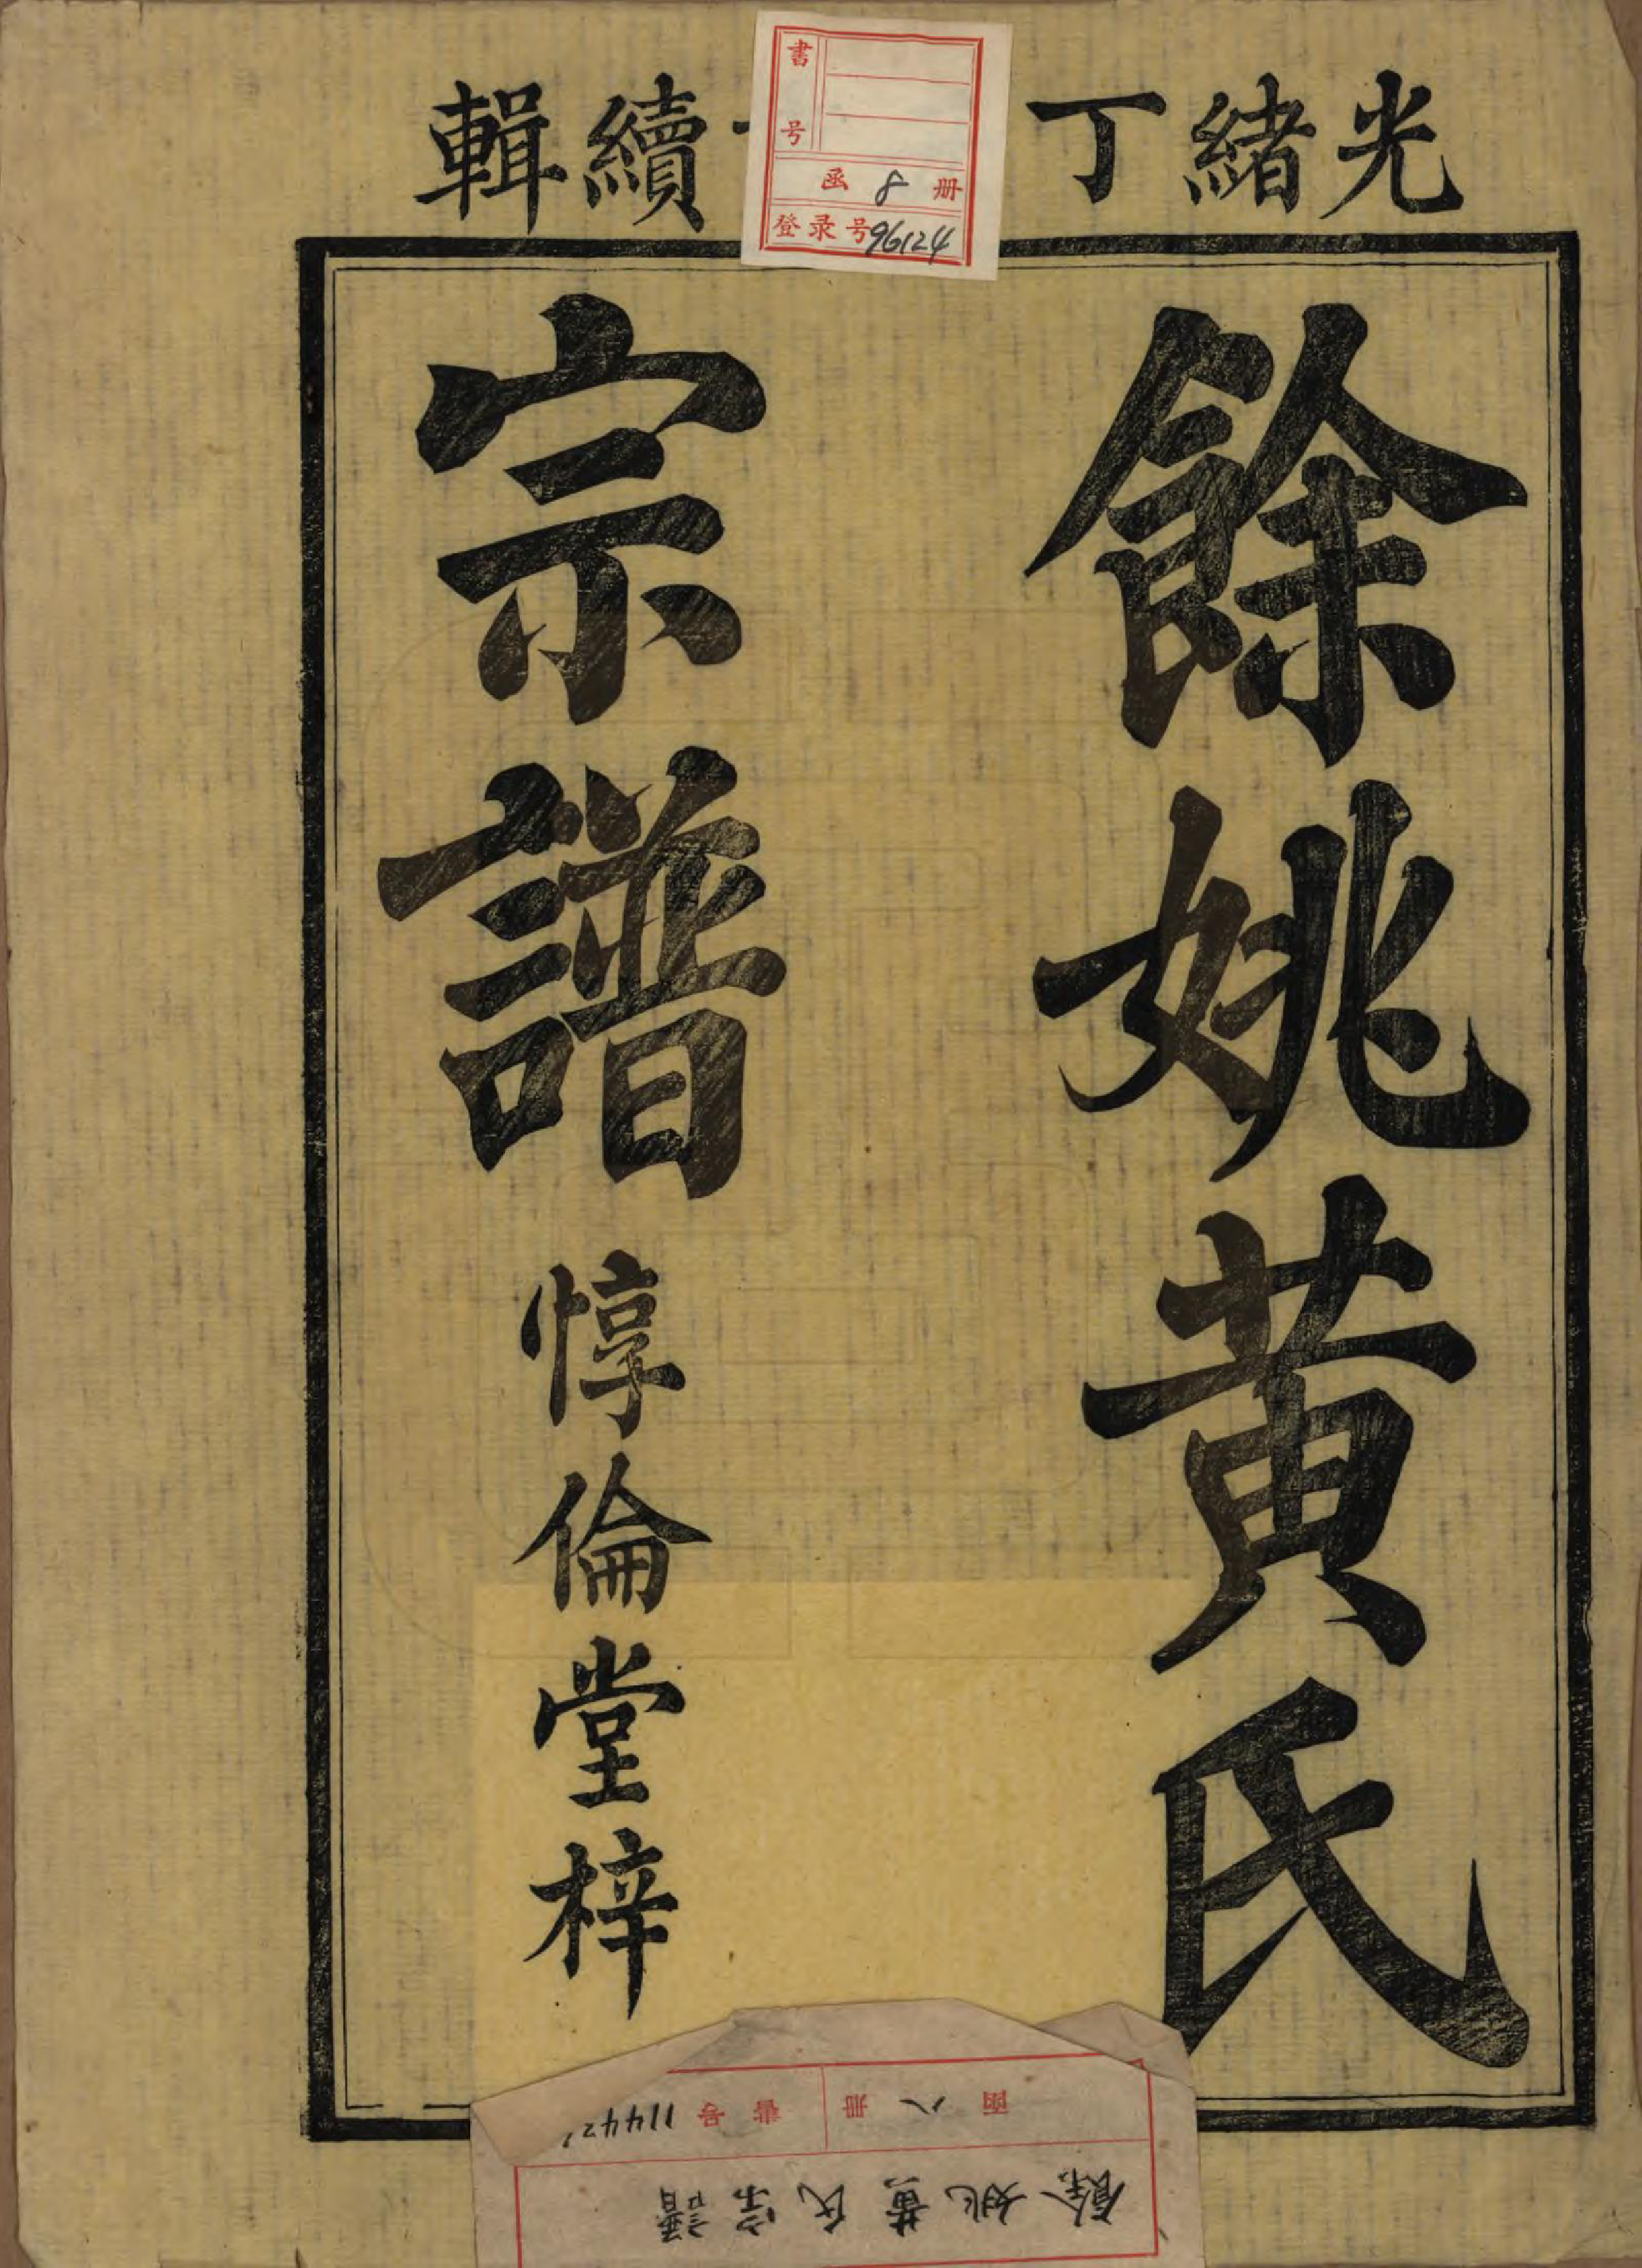 光緒丁續輯
餘姚黃氏
宗譜
惇倫堂梓
書号
函 8 册
登录号96124
函八册
書号 11442
餘姚黃氏宗譜